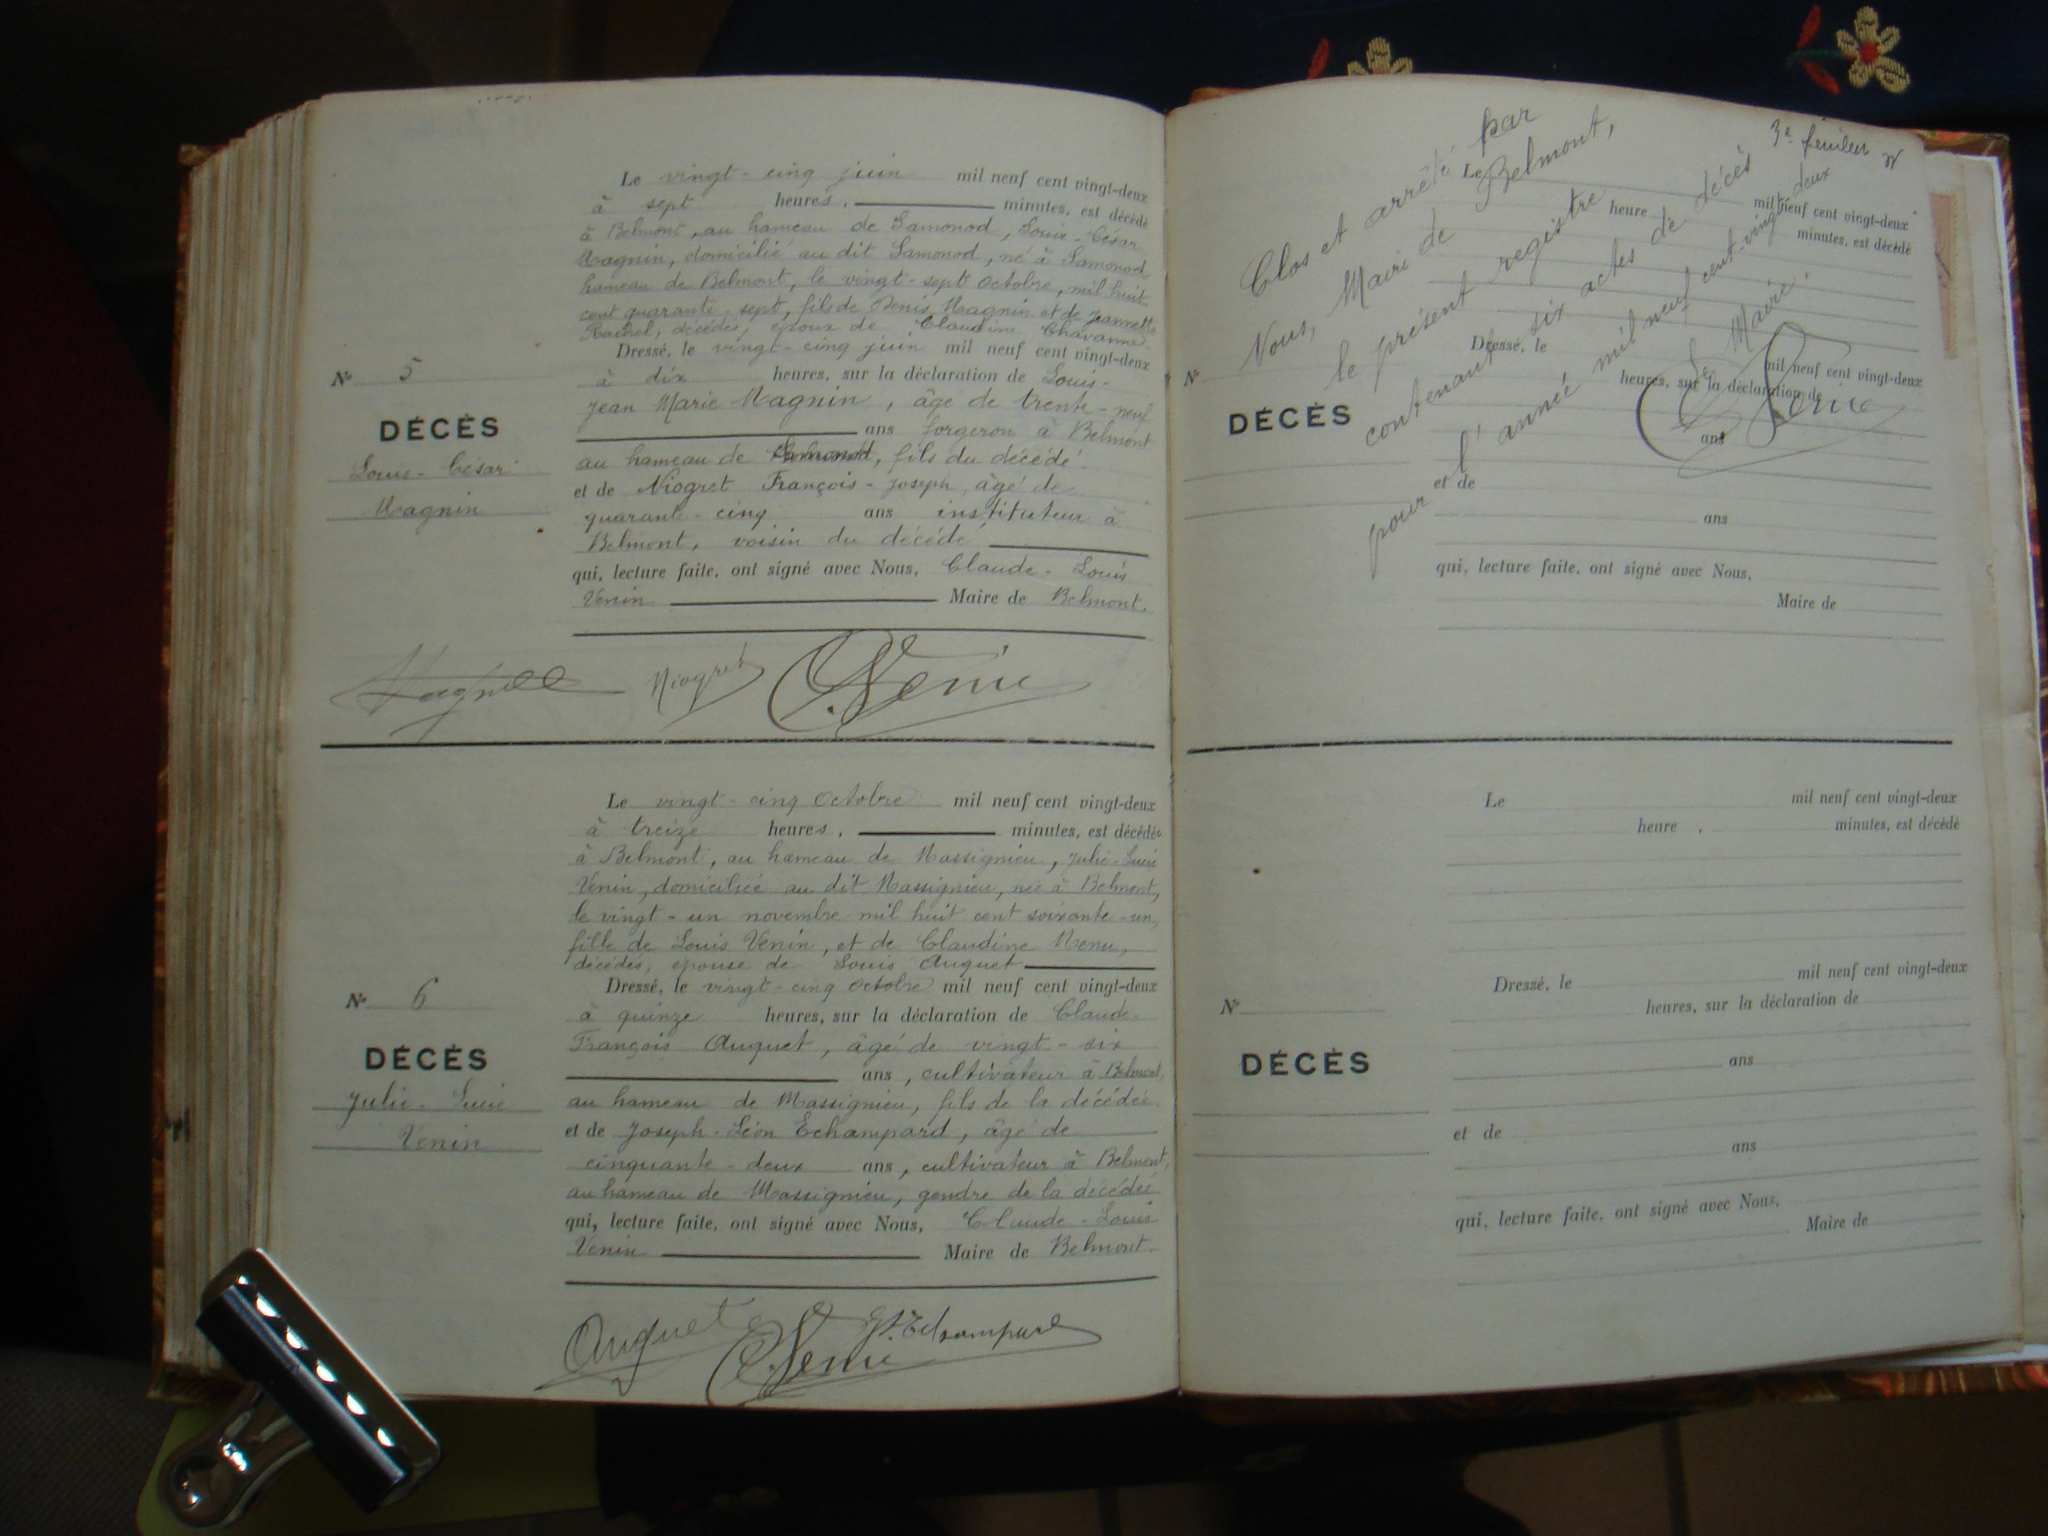 Le vingt-cinq juin mil neuf cent vingt-deux
à sept heures, minutes, est décédé
à Belmont, au hameau de Samonod, Louis-César
Magnin, domicilié au dit Samonod, né à Samonod
hameau de Belmont, le vingt-sept octobre, mil huit
cent quarante-sept, fils de Denis Magnin et de Jeannette
décédés, époux de Claudine Chavanne.
Dressé, le vingt-cinq juin mil neuf cent vingt-deux
à dix heures, sur la déclaration de Louis-
Jean Marie Magnin, âgé de trente-neuf
ans forgeron à Belmont
au hameau de Samonod, fils du décédé
et de Niogret François-Joseph, âgé de
quarant-cinq ans instituteur à
Belmont, voisin du décédé
qui, lecture faite, ont signé avec Nous, Claude-Louis
Venin Maire de Belmont.
N° 5
DÉCÈS
Louis-César
Magnin
Magnin Niogret C. Venin
Le vingt-cinq octobre mil neuf cent vingt-deux
à treize heures, minutes, est décédée
à Belmont, au hameau de Massignieu, Julie-Lucie
Venin, domiciliée au dit Massignieu, née à Belmont,
le vingt-un novembre mil huit cent soixante-un,
fille de Louis Venin, et de Claudine Menu,
décédés, épouse de Louis Auguet
Dressé, le vingt-cinq octobre mil neuf cent vingt-deux
à quinze heures, sur la déclaration de Claude-
François Auguet, âgé de vingt-six
ans, cultivateur à Belmont,
au hameau de Massignieu, fils de la décédée
et de Joseph-Léon Echampard, âgé de
cinquante-deux ans, cultivateur à Belmont,
au hameau de Massignieu, gendre de la décédée
qui, lecture faite, ont signé avec Nous, Claude-Louis
Venin Maire de Belmont.
N° 6
DÉCÈS
Julie-Lucie
Venin
Auguet C. Venin Echampard
3e feuillet
Clos et arrêté par
Nous, Maire de Belmont,
le présent registre
contenant six actes de décès
pour l'année mil neuf cent-vingt-deux
Le Maire.
C. Venin
Le mil neuf cent vingt-deux
heure minutes, est décédé
Dressé, le mil neuf cent vingt-deux
heures, sur la déclaration de
N°
DÉCÈS
ans
et de
ans
qui, lecture faite, ont signé avec Nous,
Maire de
Le mil neuf cent vingt-deux
heure , minutes, est décédé
Dressé, le mil neuf cent vingt-deux
heures, sur la déclaration de
N°
DÉCÈS
ans
et de
ans
qui, lecture faite, ont signé avec Nous,
Maire de